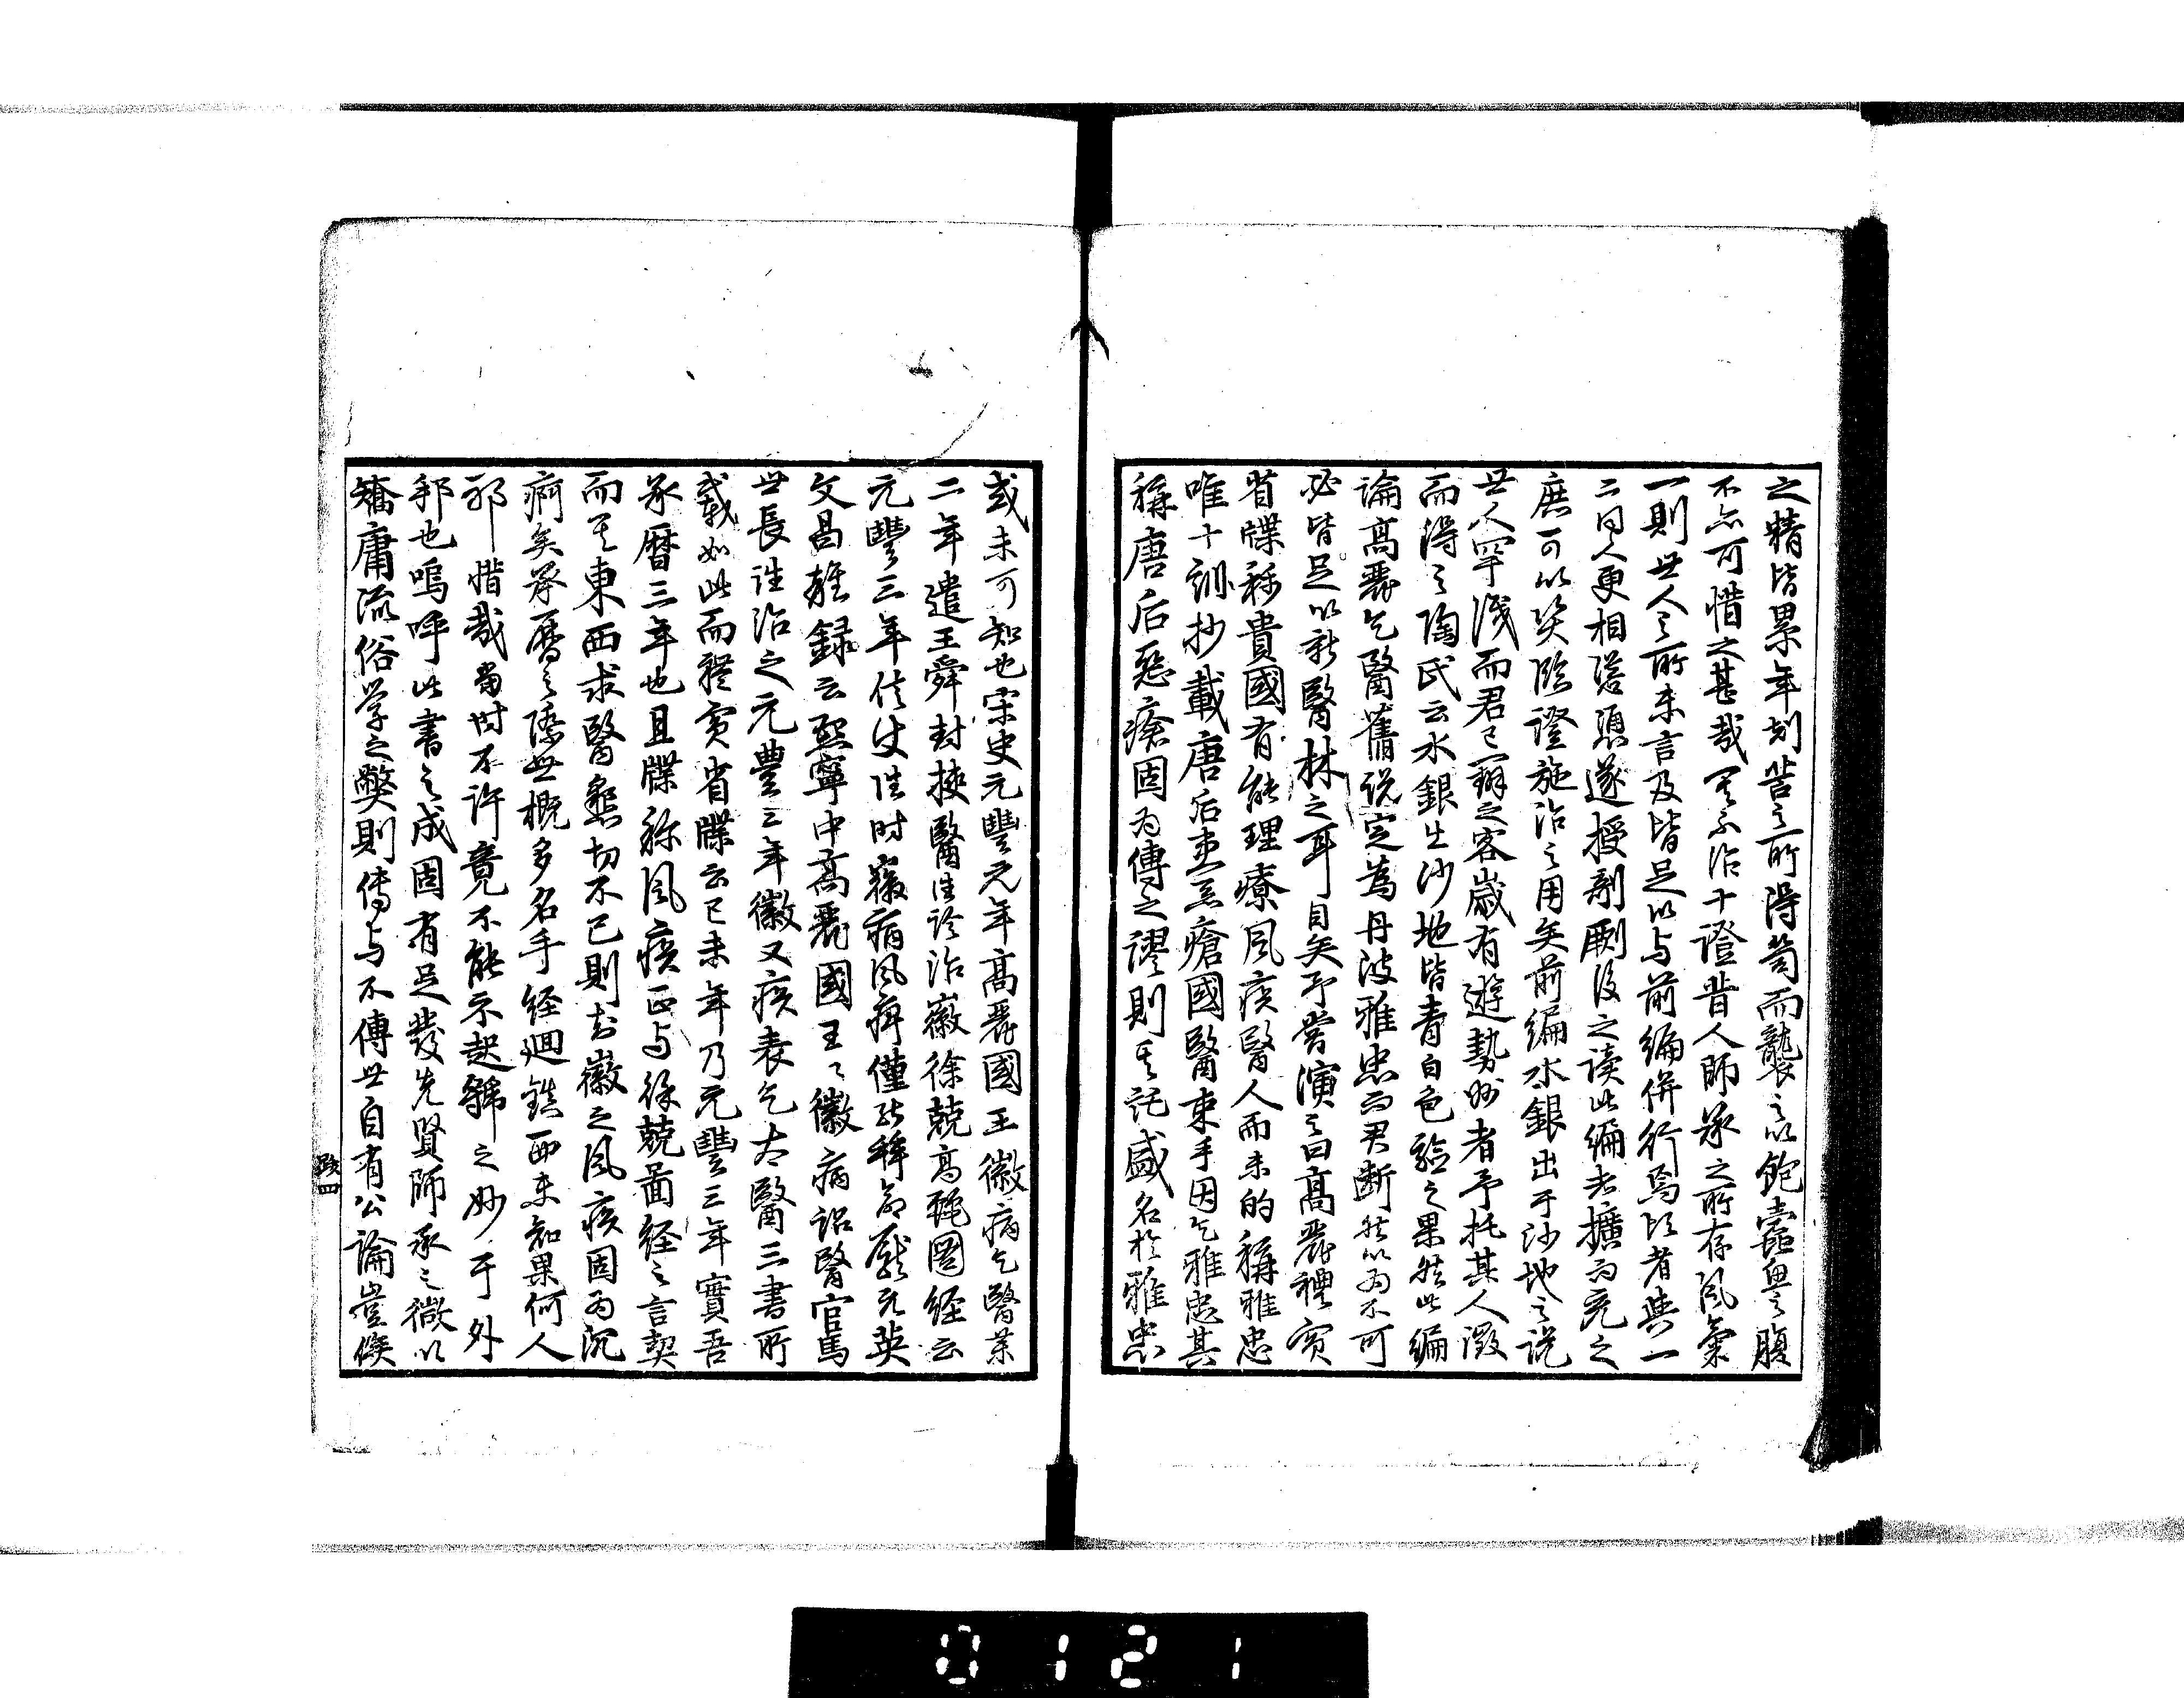 之精皆累年刻苦之所得苟而襲之以飽蠹魚之腹
不亦可惜之甚哉其不治十證昔人師承之所存風氣
一則世人之所未言及皆足以与前編併行焉頃者与一
二同人更相慫慂遂授剞劂後之读此編者擴而充之
庶可以奖臨證施治之用矣前編水銀出于沙地之说
世人罕識而君已辨之客歲有遊勢州者予托其人澂
而得之陶氏云水銀生沙地皆青白色驗之果然此編
論高麗乞醫舊说定為丹波雅忠而君断然以为不可
必皆足以新醫林之耳目矣予嘗演之曰高麗禮賓
省牒称貴國有能理療风疾醫人而未的稱雅忠
唯十訓抄載唐后患惡瘡國醫束手因乞雅忠其
稱唐后惡瘡固为傳之謬則其託盛名於雅忠
或未可知也宋史元豐元年高麗國王徽病乞醫藥
二年遣王舜封挾醫往診治徽徐兢高麗圖経云
元豐三年信使往时徽病风痺僅能拜命龐元英
文昌雜録云熙寧中高麗國王々徽病诏醫官馬
世長往治之元豊三年徽又疾表乞太醫三書所
載如此而禮賓省牒云己未年乃元豐三年實吾
承暦三年也且牒称风疾正与徐兢图経之言契
而其東西求醫懇切不已則知徽之风疾固为沉
痾矣承暦之際世概多名手経廻鎮西未知果何人
邪惜哉當时不許竟不能示起號之妙于外
邦也嗚呼此書之成固有足發先賢師承之微以
矯庸流俗学之弊則傳与不傳世自有公論豈俟
跋四
0121